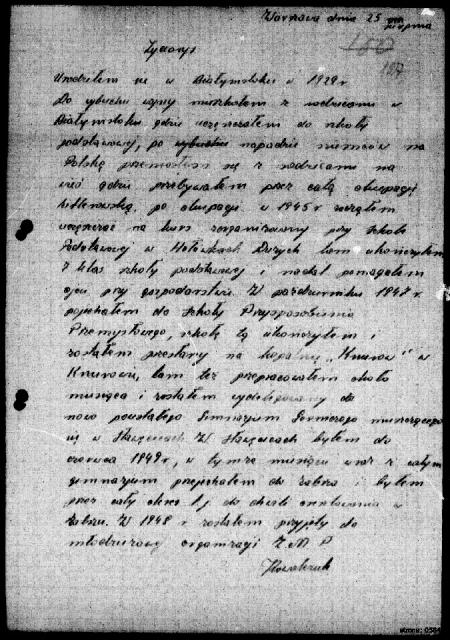 Warszawa dnia 25 sierpnia
187
Życiorys
Urodziłem się w Białymstoku w 1929 r
Do wybuchu wojny mieszkałem z rodzicami w
Białymstoku gdzie uczęszczałem do szkoły
podstawowej, po wybuchu napadzie niemców na
Polskę przeniosłem się z rodzicami na
wieś gdzie przebywałem przez całą okupację
hitlerowską, po okupacji w 1945 r zacząłem
uczęszczać na kurs zorganizowany przy Szkole
Podstawowej w Hołówkach Dużych tam ukończyłem
7 klas szkoły podstawowej i nadal pomagałem
ojcu przy gospodarstwie. W październiku 1947 r
pojechałem do Szkoły Przysposobienia
Przemysłowego, szkołę tą ukończyłem i
zostałem przesłany na kopalnię "Knurów" w
Knurowie, tam też przepracowałem około
miesiąca i zostałem oddelegowany do
nowo powstałego Gimnazjum mieszczącego
się w Sławęcicach. W Sławęcicach byłem do
czerwca 1949 r, w tymże miesiącu wraz z całym
gimnazjum przejechałem do Zabrza i byłem
przez cały okres t.j. do chwili w
Zabrzu. W 1948 r zostałem przyjęty do
młodzieżowej organizacji Z.M.P
Kowalczuk
strona: 0384